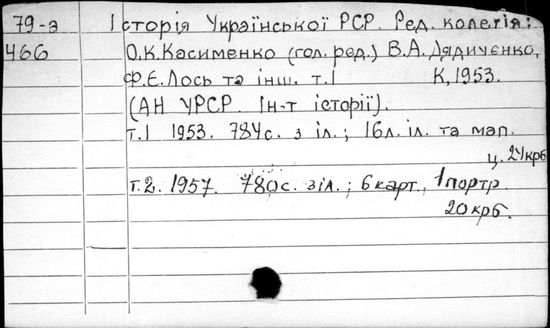 79-з Історія Української РСР. Ред. колегія:
466 О.К.Касименко (гол. ред.) В.А. Дядиченко,
Ф.Є.Лось та інш. т.І К, 1953.
(АН УРСР. Ін-т історії).
т.І 1953. 784с. з іл.; 16л. іл. та мап.
ц. 24крб
т.2. 1957. 780с. з іл.; 6 карт., 1 портр.
20крб.